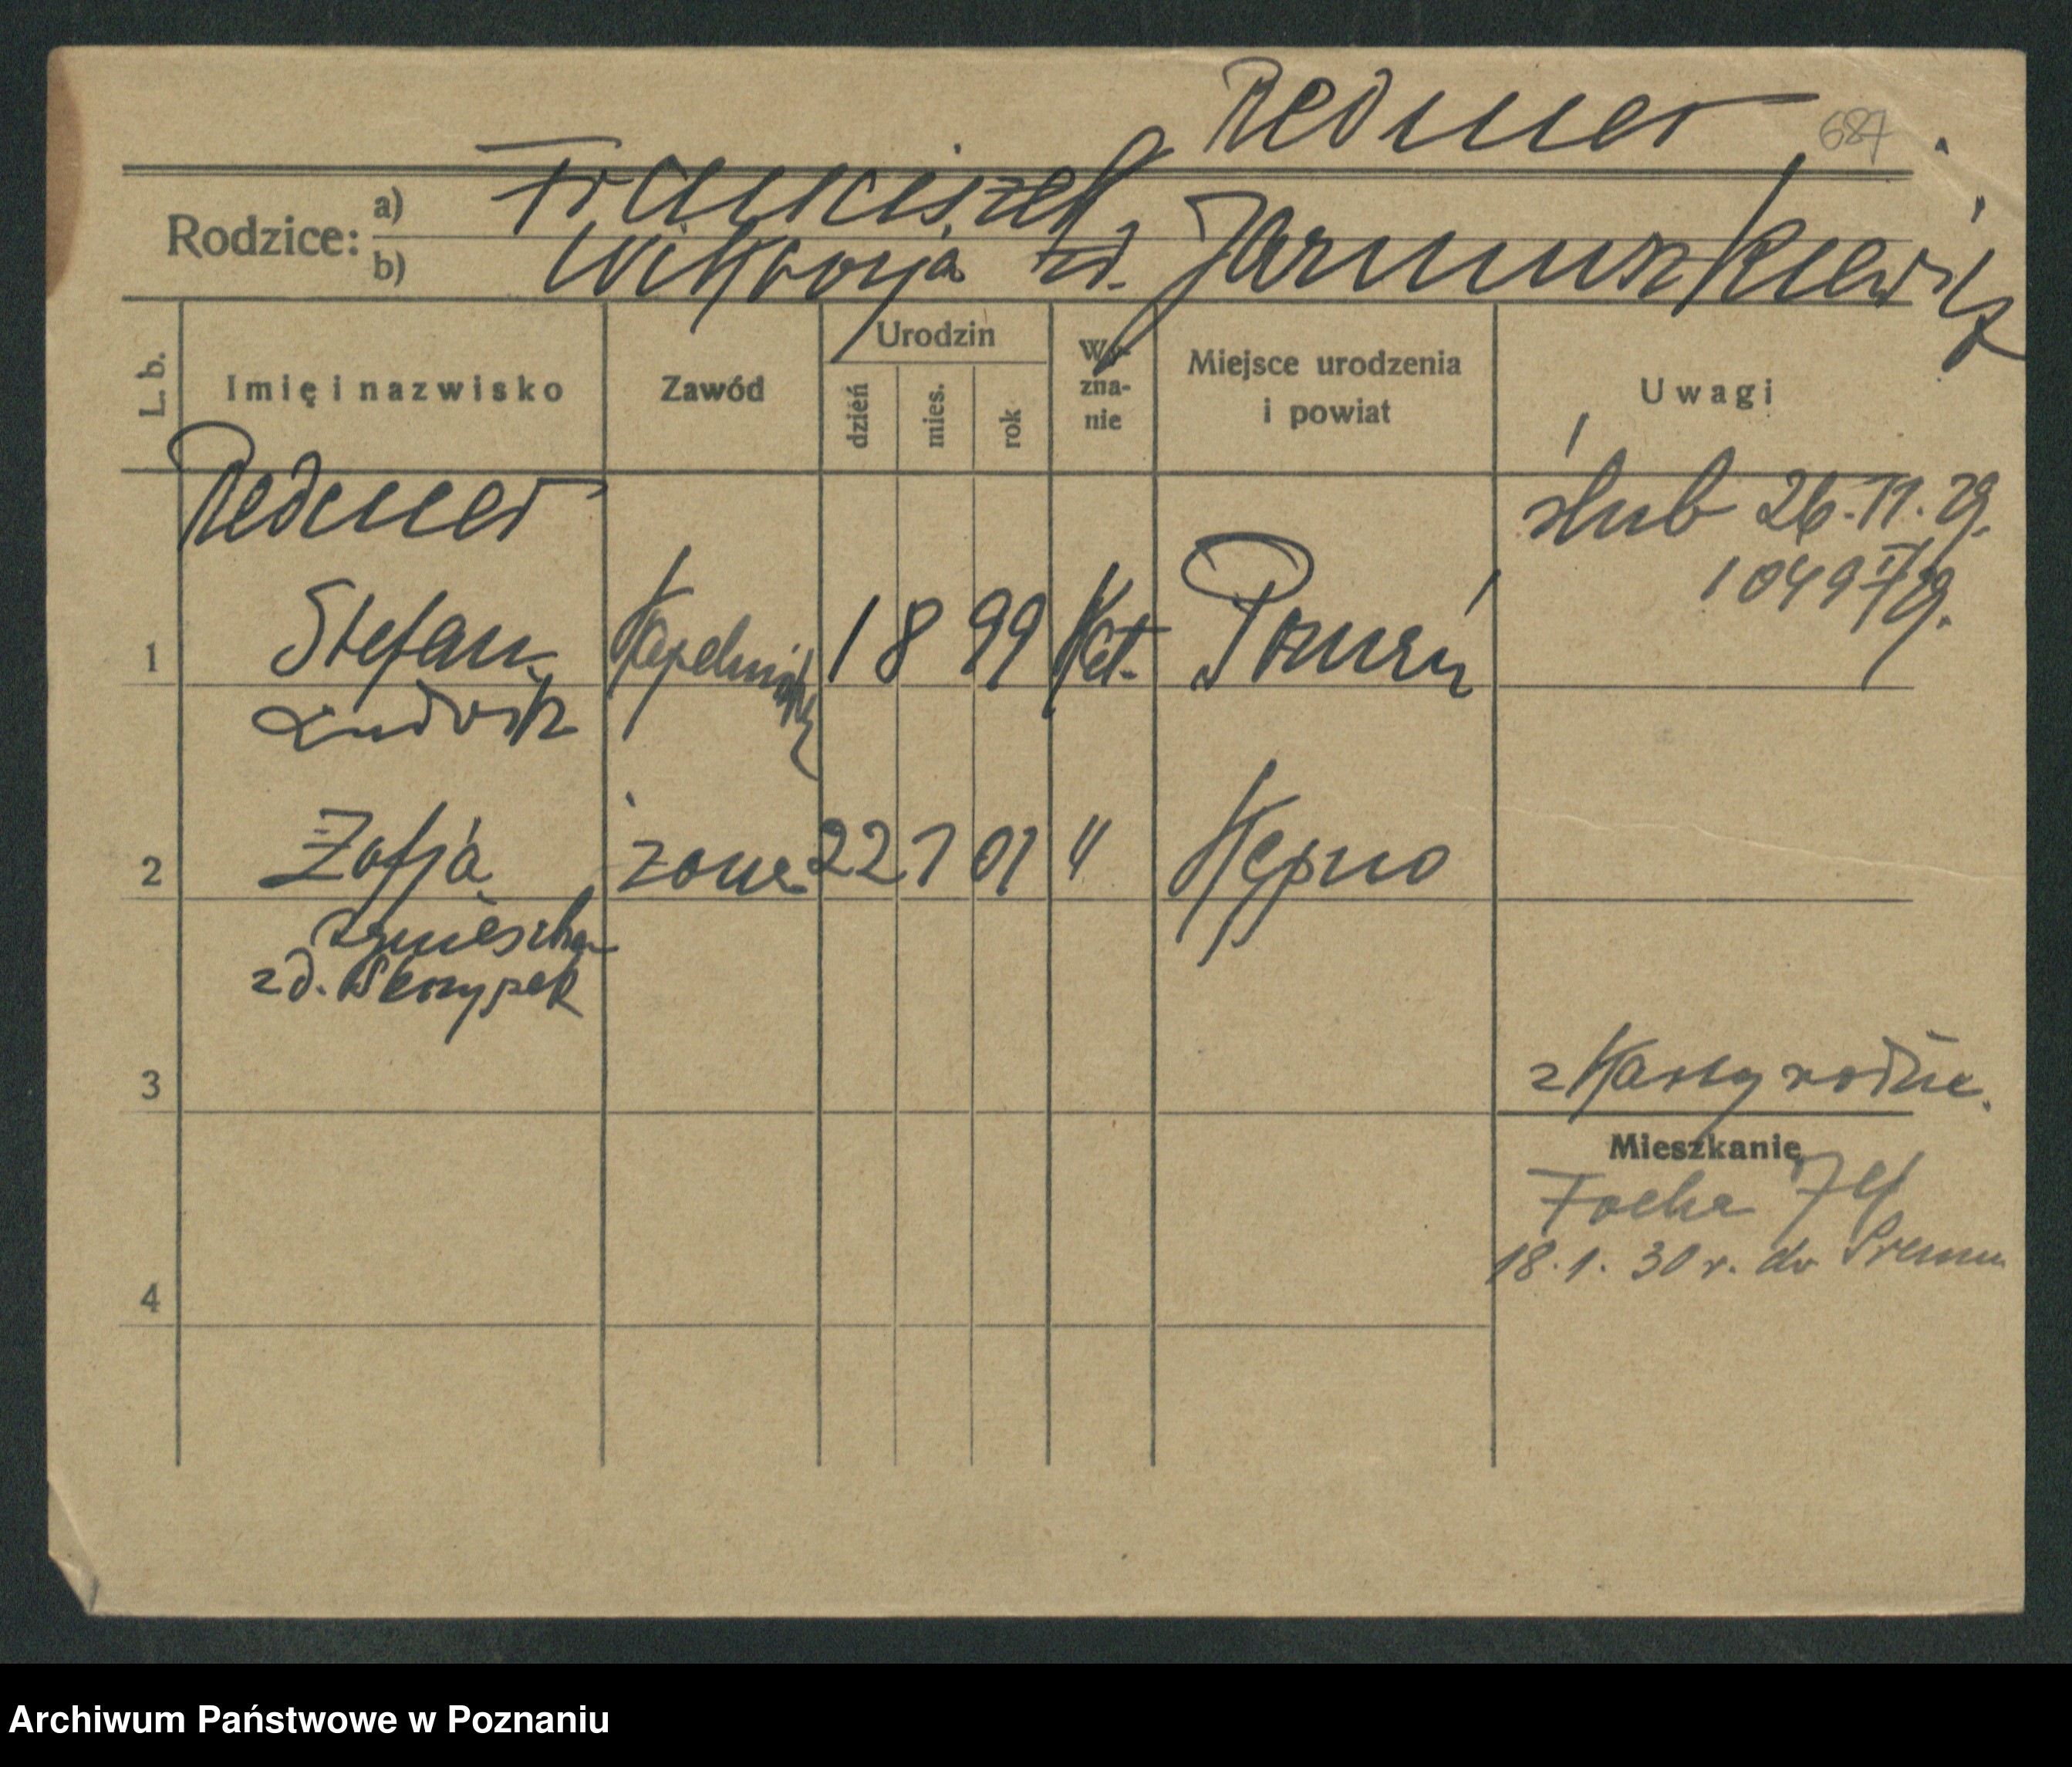 Redner
687
Rodzice: a) Franciszek
b) Wiktorja zd. Jarmuszkiewicz
L. b.
Imię i nazwisko
Zawód
Urodzin
dzień
mies.
rok
Wy-
zna-
nie
Miejsce urodzenia
i powiat
Uwagi
Redner
ślub 26.11.29.
1 Stefan Kapelmistrz 1 8 99 Kat. Poznań
Ludwik
2 Zofja żona 22 1 01 " Kępno
Agnieszka
zd. Skrzypek
3
z Karty rodzic.
Mieszkanie
Focha
18.1.30 r. do Śremu
4
Archiwum Państwowe w Poznaniu